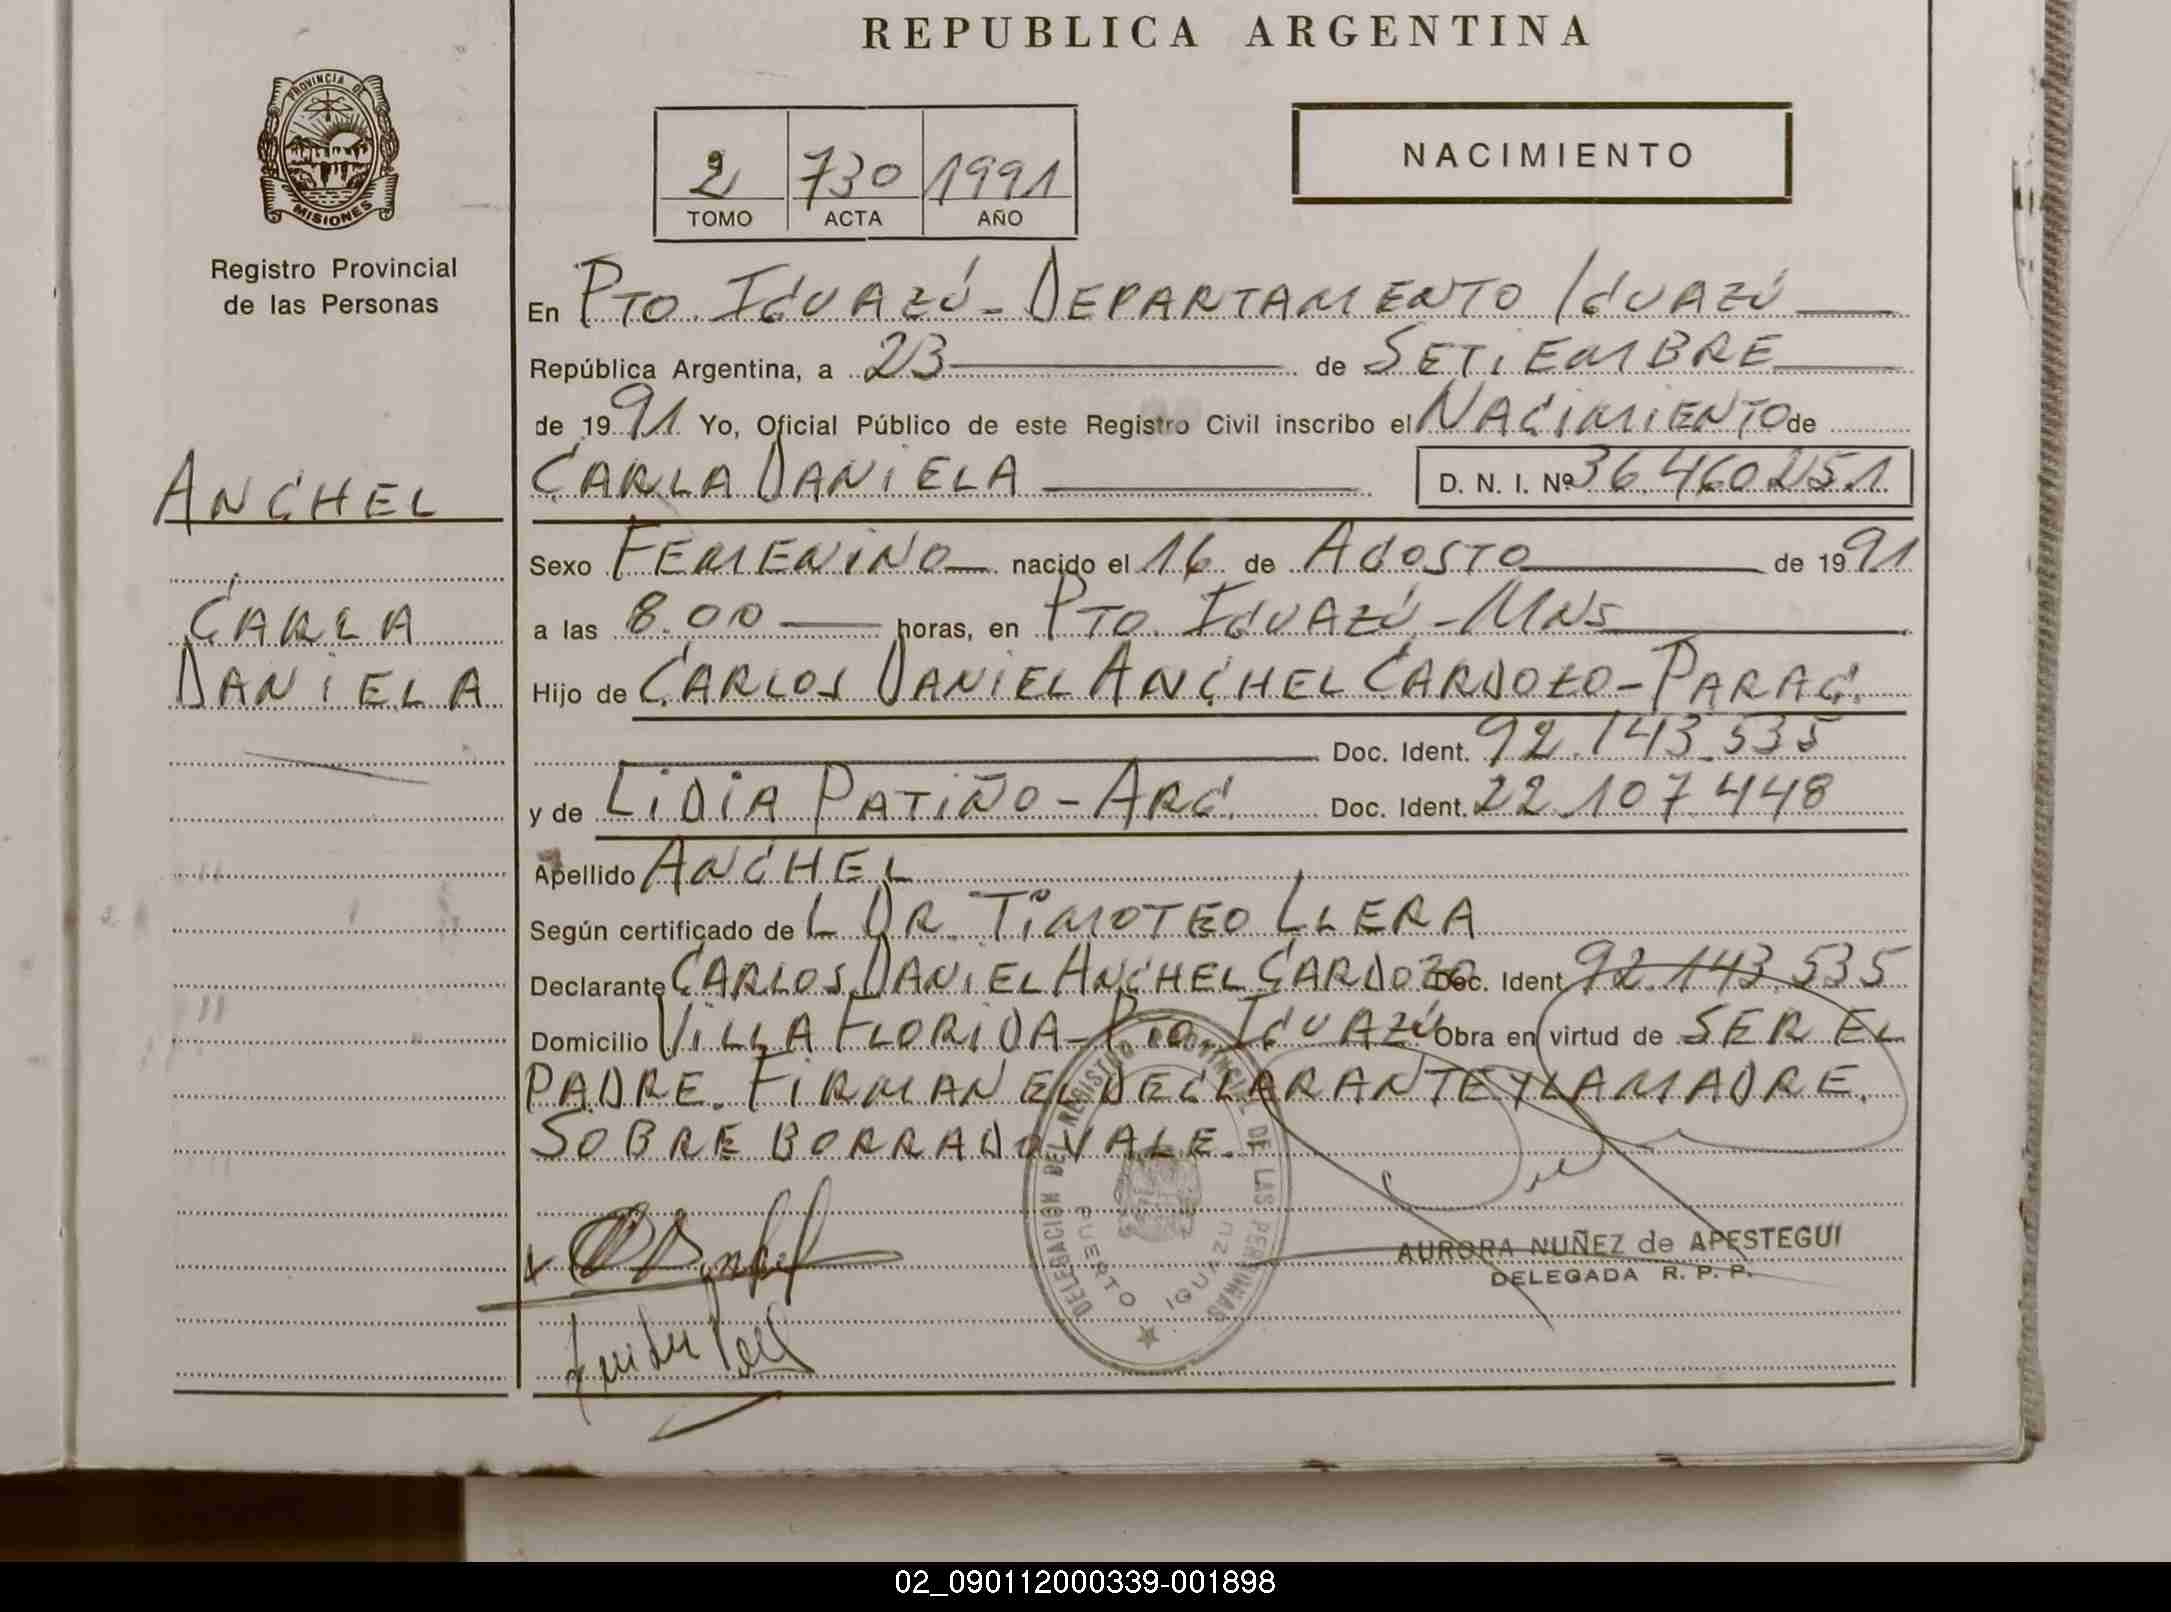 REPUBLICA ARGENTINA
PROVINCIA DE MISIONES
Registro Provincial
de las Personas
2 730 1991
TOMO ACTA AÑO
NACIMIENTO
En PTO. IGUAZÚ - DEPARTAMENTO IGUAZÚ
República Argentina, a 23 de SETIEMBRE
de 1991 Yo, Oficial Público de este Registro Civil inscribo el NACIMIENTO de
CARLA DANIELA D. N. I. Nº 36.460.251
ANCHEL
CARLA
DANIELA
Sexo FEMENINO nacido el 16 de AGOSTO de 1991
a las 8.00 horas, en PTO. IGUAZÚ - MNS
Hijo de CARLOS DANIEL ANCHEL CARDOZO - PARAG.
Doc. Ident. 92.143.535
y de LIDIA PATIÑO - ARG. Doc. Ident. 22.107.448
Apellido ANCHEL
Según certificado de L DR. TIMOTEO LLERA
Declarante CARLOS DANIEL ANCHEL CARDOZO Doc. Ident. 92.143.535
Domicilio VILLA FLORIDA - PTO. IGUAZÚ Obra en virtud de SER EL
PADRE. FIRMAN EL DECLARANTE Y LA MADRE.
SOBRE BORRADO VALE.
DELEGACIÓN DEL REGISTRO PROVINCIAL DE LAS PERSONAS
PUERTO IGUAZU
AURORA NUÑEZ de APESTEGUI
DELEGADA R. P. P.
02_090112000339-001898